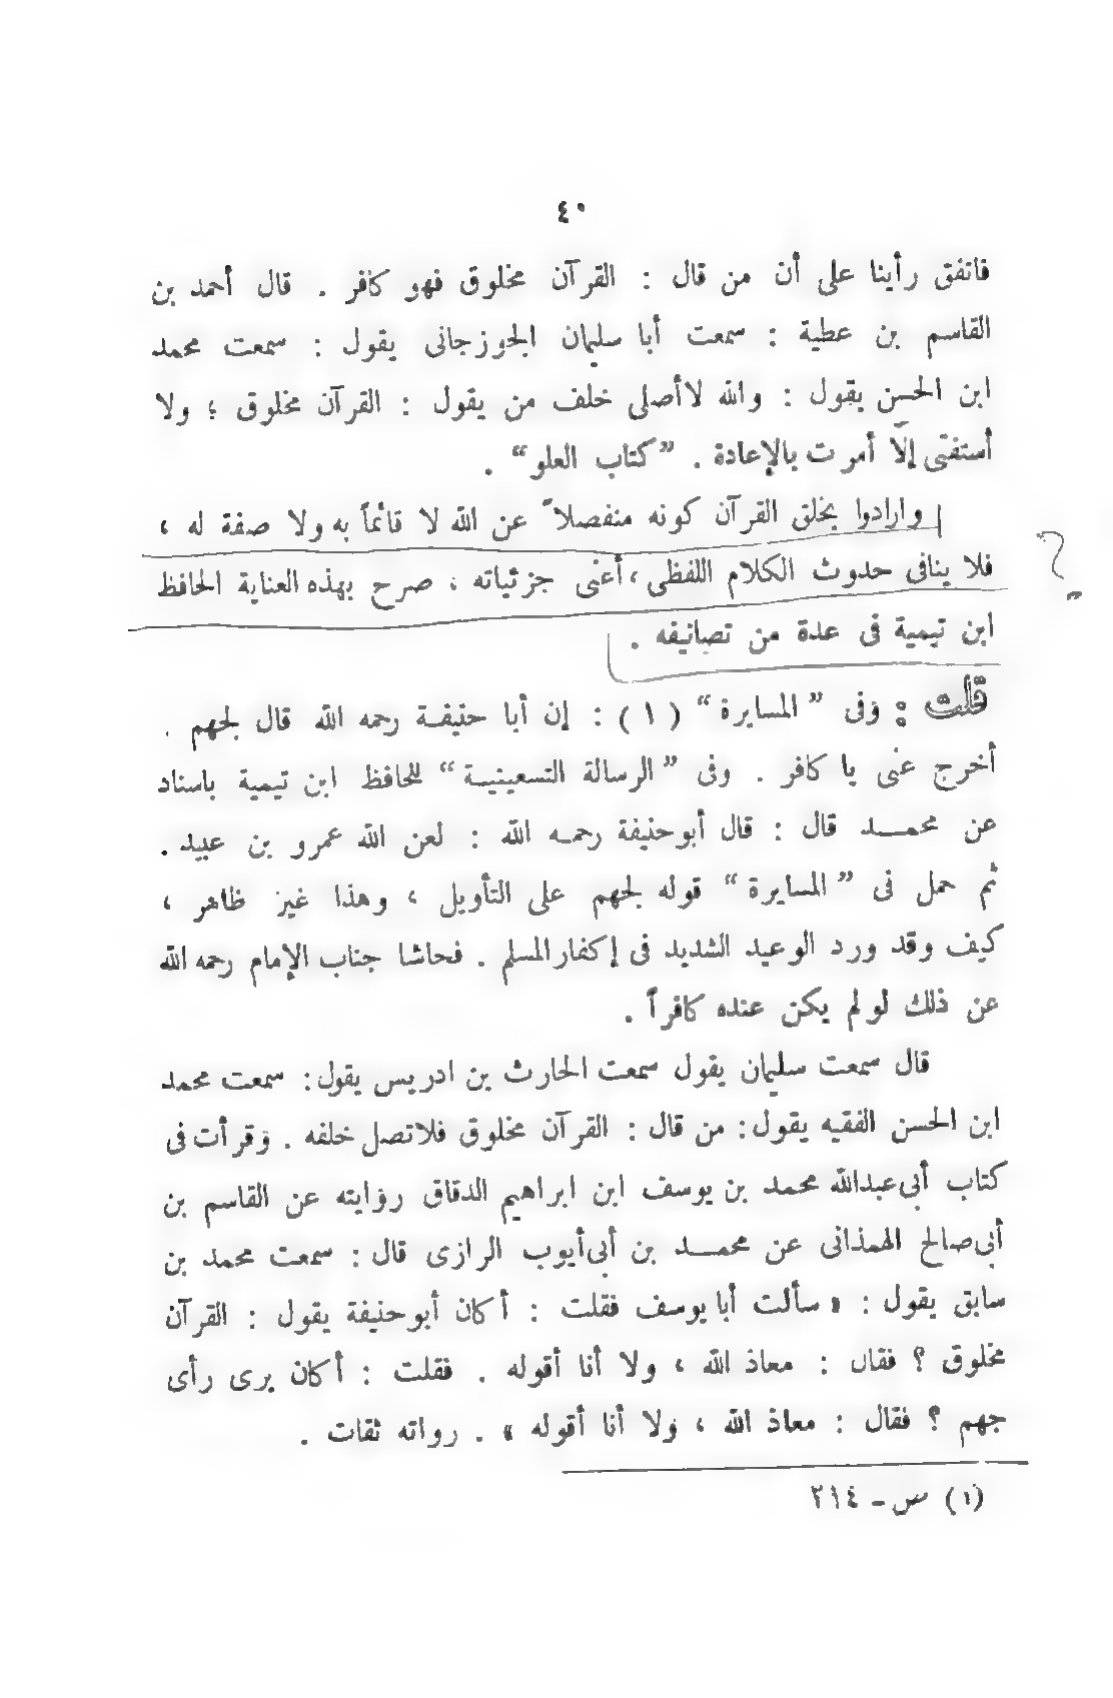 ٤٠
فاتفق رأينا على أن من قال : القرآن مخلوق فهو كافر . قال أحمد بن
القاسم بن عطية : سمعت أبا سليمان الجوزجانى يقول : سمعت محمد
ابن الحسن يقول : والله لا أصلى خلف من يقول : القرآن مخلوق ؛ ولا
أستفتى إلّا أمرت بالإعادة . ”كتاب العلو“ .
وارادوا بخلق القرآن كونه منفصلاً عن الله لا قائماً به ولا صفة له ،
فلا ينافى حدوث الكلام اللفظى ، أعنى جزئياته ، صرح بهذه العناية الحافظ
ابن تيمية فى عدة من تصانيفه .
قلت : وفى ”المسايرة“ (١) : إن أبا حنيفة رحمه الله قال لجهم .
أخرج عنى يا كافر . وفى ”الرسالة التسعينية“ للحافظ ابن تيمية باسناد
عن محمد قال : قال أبو حنيفة رحمه الله : لعن الله عمرو بن عبيد .
ثم حمل فى ”المسايرة“ قوله لجهم على التأويل ، وهذا غير ظاهر ،
كيف وقد ورد الوعيد الشديد فى إكفار المسلم . فحاشا جناب الإمام رحمه الله
عن ذلك لو لم يكن عنده كافراً .
قال سمعت سليمان يقول سمعت الحارث بن ادريس يقول : سمعت محمد
ابن الحسن الفقيه يقول : من قال : القرآن مخلوق فلا تصل خلفه . وقرأت فى
كتاب أبى عبدالله محمد بن يوسف ابن ابراهيم الدقاق روايته عن القاسم بن
أبى صالح الهمذانى عن محمد بن أبى أيوب الرازى قال : سمعت محمد بن
سابق يقول : « سألت أبا يوسف فقلت : أكان أبو حنيفة يقول : القرآن
مخلوق ؟ فقال : معاذ الله ، ولا أنا أقوله . فقلت : أكان يرى رأى
جهم ؟ فقال : معاذ الله ، ولا أنا أقوله » . رواته ثقات .
(١) ص - ٢١٤
؟